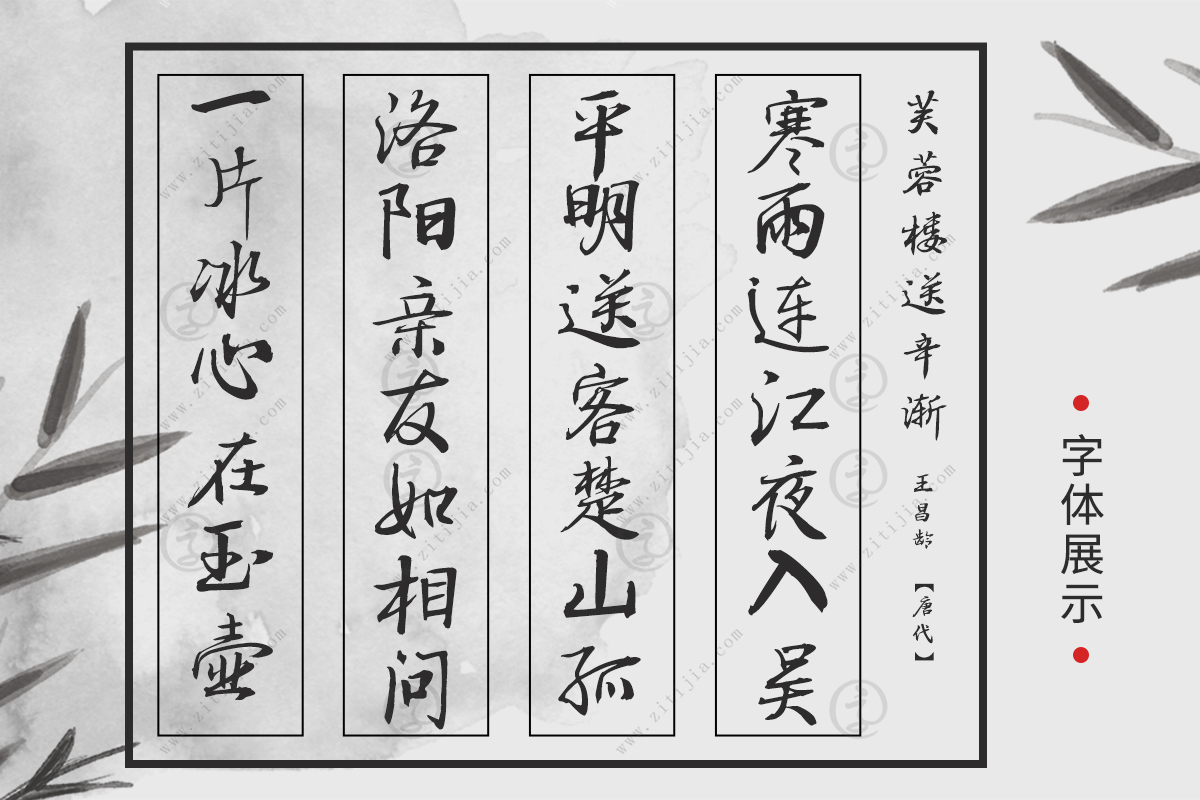 芙蓉楼送辛渐 王昌龄 【唐代】
寒雨连江夜入吴
平明送客楚山孤
洛阳亲友如相问
一片冰心在玉壶
字体展示
www.zitijia.com